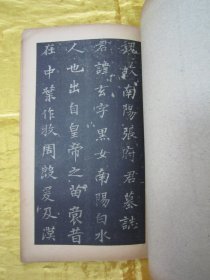 魏故南陽張府君墓誌
君諱玄字黑女南陽白水
人也出自皇帝之苗裔昔
在中葉作牧周殷爰及漢